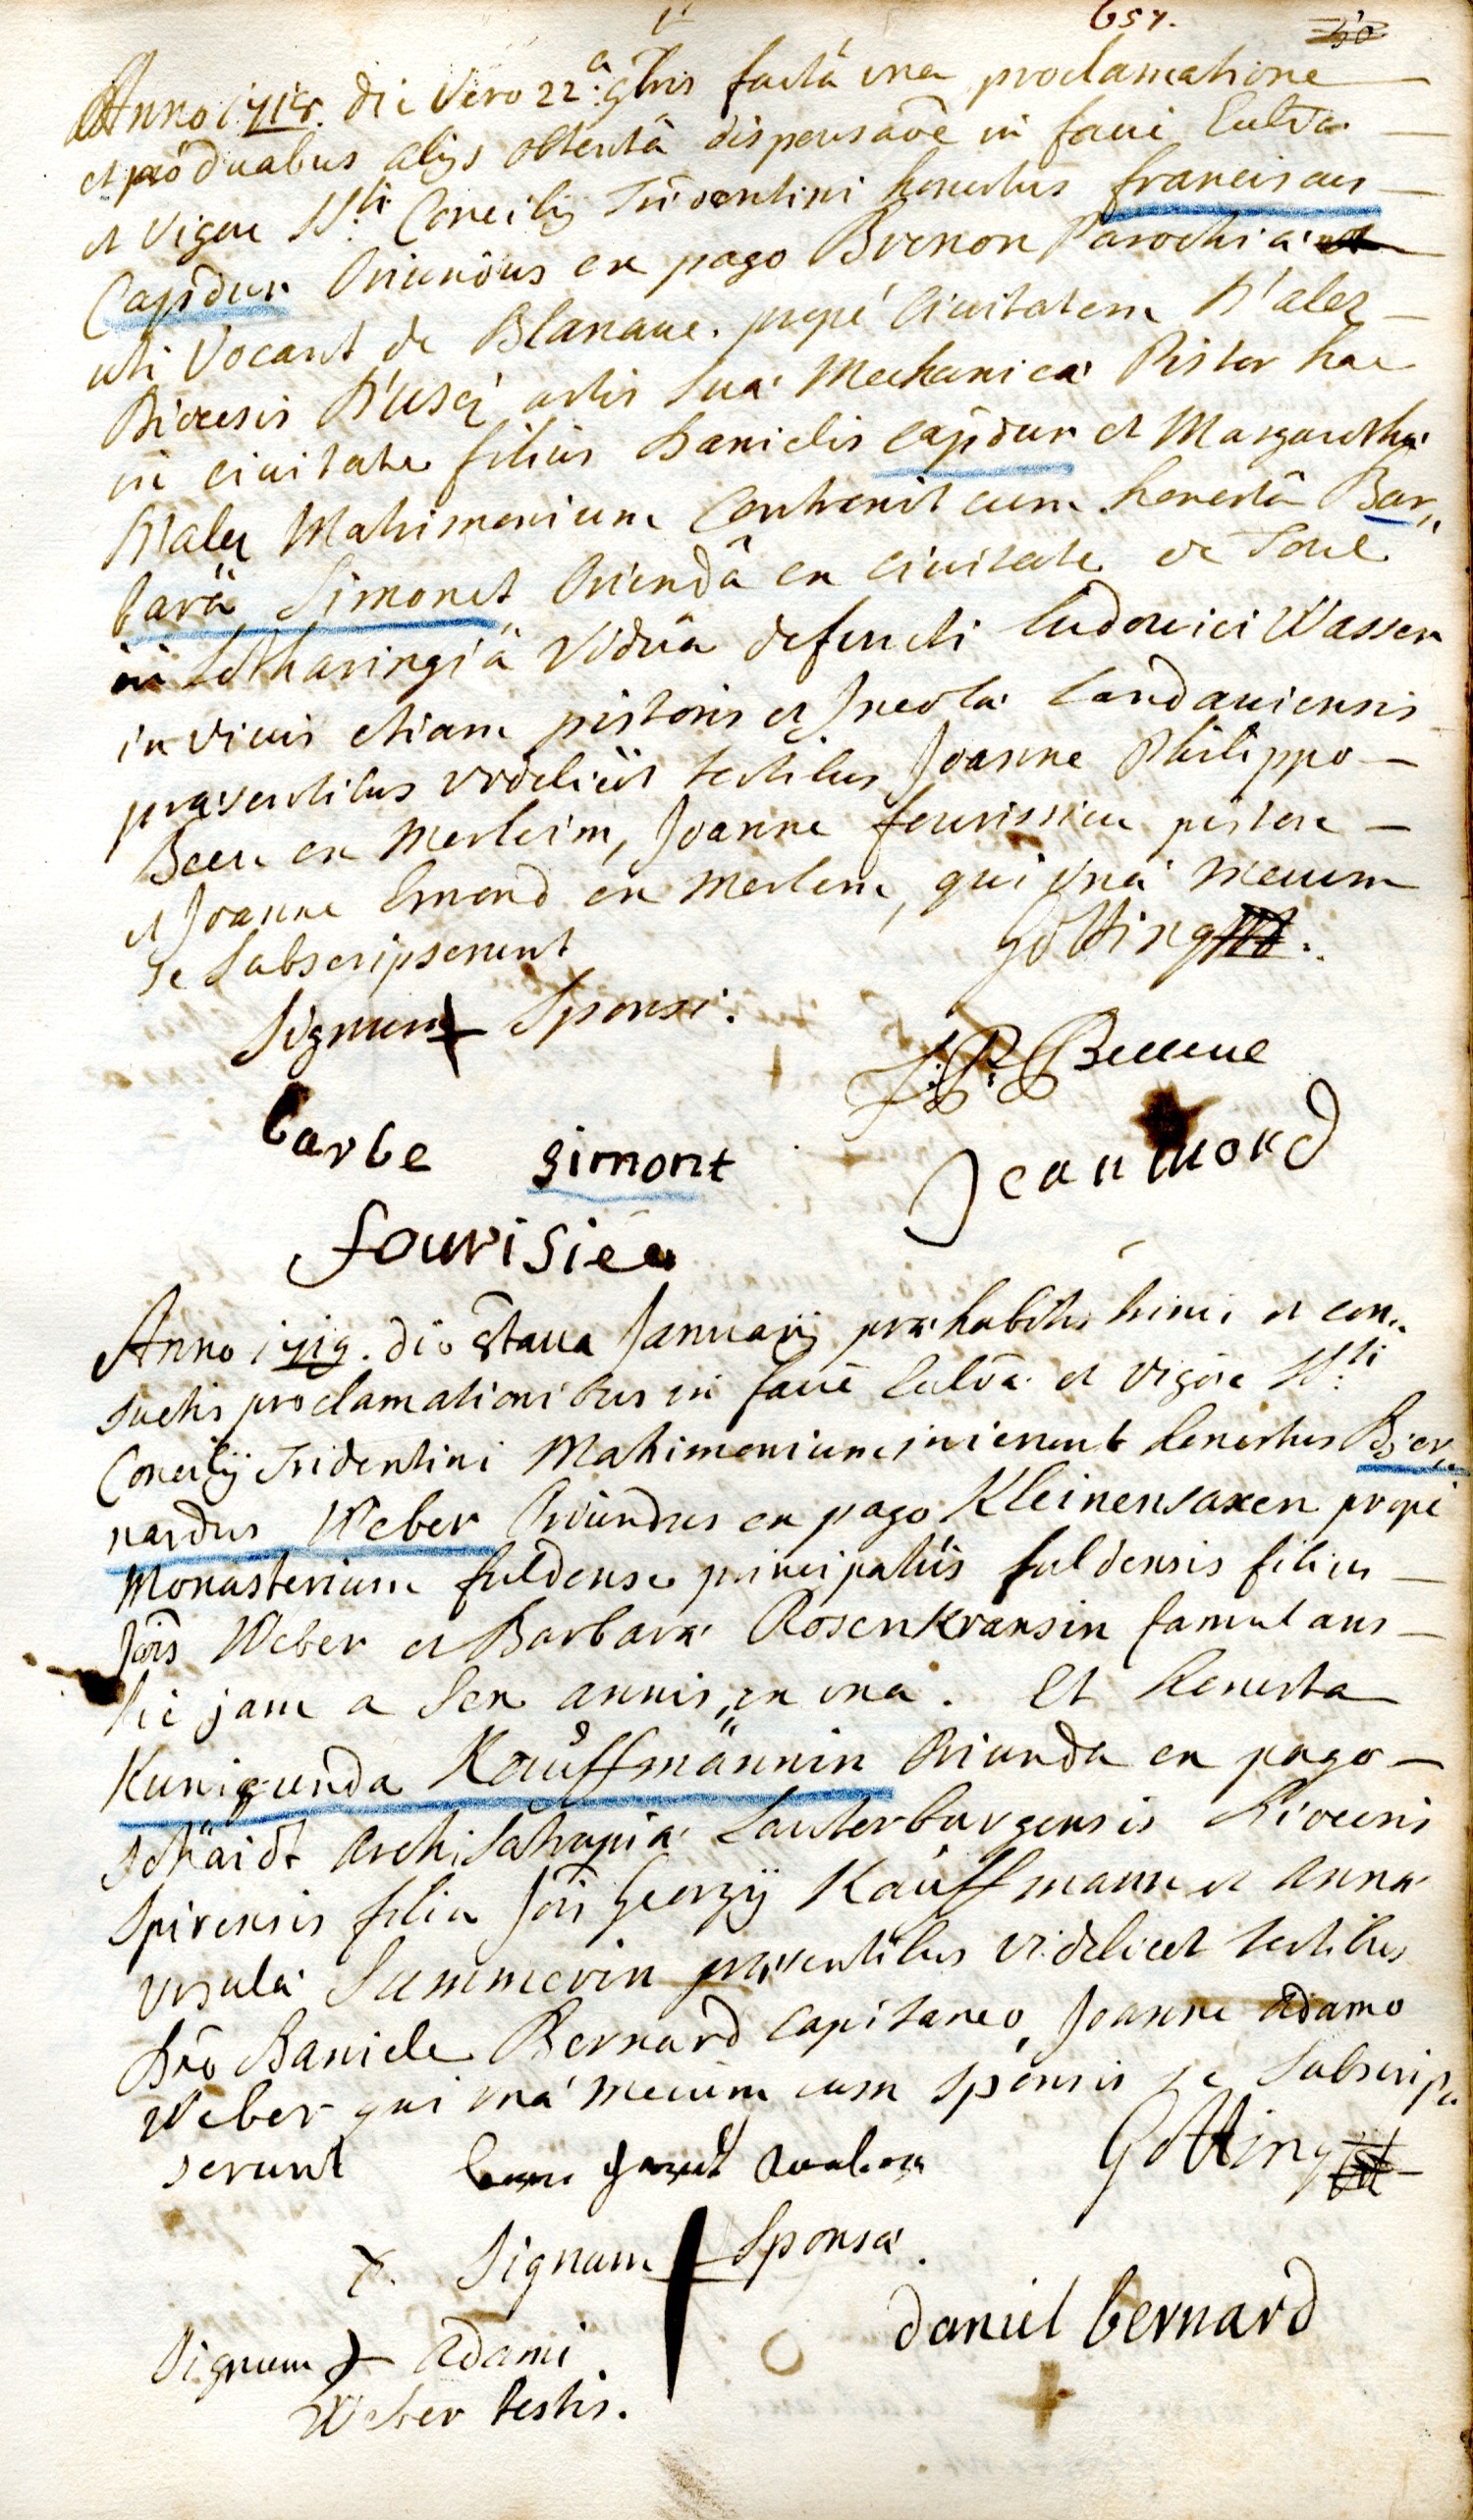 657.
50
Anno 1718. die Vero 22.a 9bris factâ una proclamatione
et pro duabus alijs obtentâ dispensaõe in facie Eccle͠a
et vigore S.ti Concilij Tridentini honestus franciscus
Capdur Oriundus ex pago Brenon Parochia
uti Vocant de Blanaue. propé Civitatem D'alez
Dioecesis D'usez artis sua Mechanica Pistor hac
in civitate filius Danielis Capdur et Margaretha
Matrimonium Contraxit cum honestâ Bar„
barâ Simonet Oriundâ ex civitate de Toul
in Lotharingiâ Viduâ defuncti Ludovici Wasser
in vivis etiam pistoris et Incola Landaviensis
praesentibus videlicet testibus Joanne Philippo
ex Merleim, Joanne fourissier pistore
et Joanne Emond ex Merlem, qui unà mecum
se Subscripserunt
Gotting
Signum + Sponsi.
J: P: Beccue
barbe simont
Jean mond
fourisiée
Anno 1719. die 8tava Januarij praehabitis trinis et con„
suetis proclamationibus in facie Eccle͠a et vigore S.ti
Concilij Tridentini Matrimonium inierunt honestus Ber„
nardus Weber Oriundus ex pago Kleinensaxen propé
Monasterium fuldense principatûs fuldensis filius
Jois Weber et Barbara Rosenkransin famulans
hic jam a Sex annis, ex una. Et honesta
Kunigunda Kauffmännin Oriunda ex pago
schäidt Archisatrapia Lauterburgensis Dioecesis
Spirensis filia Jois Georgij Kauffmann et Anna
Ursula Summerin praesentibus videlicet testibus
Dno Daniele Bernard Capitaneo, Joanne Adamo
Weber qui unà mecum cum sponsis se Subscrip„
serunt
Gotting
Signum + Sponsa.
daniel bernard
Signum + Adami
Weber testis.